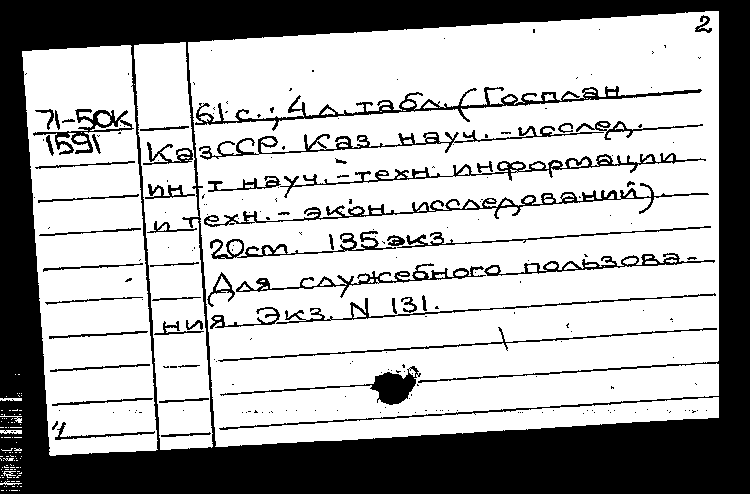 2
61 с.; 4 л. табл. (Госплан
71-50к
1591
КазССР. Каз. науч.-исслед.
ин-т науч.-техн. информации
и техн.-экон. исследований).
20cm. 135 экз.
Для служебного пользова-
ния. Экз. N 131.